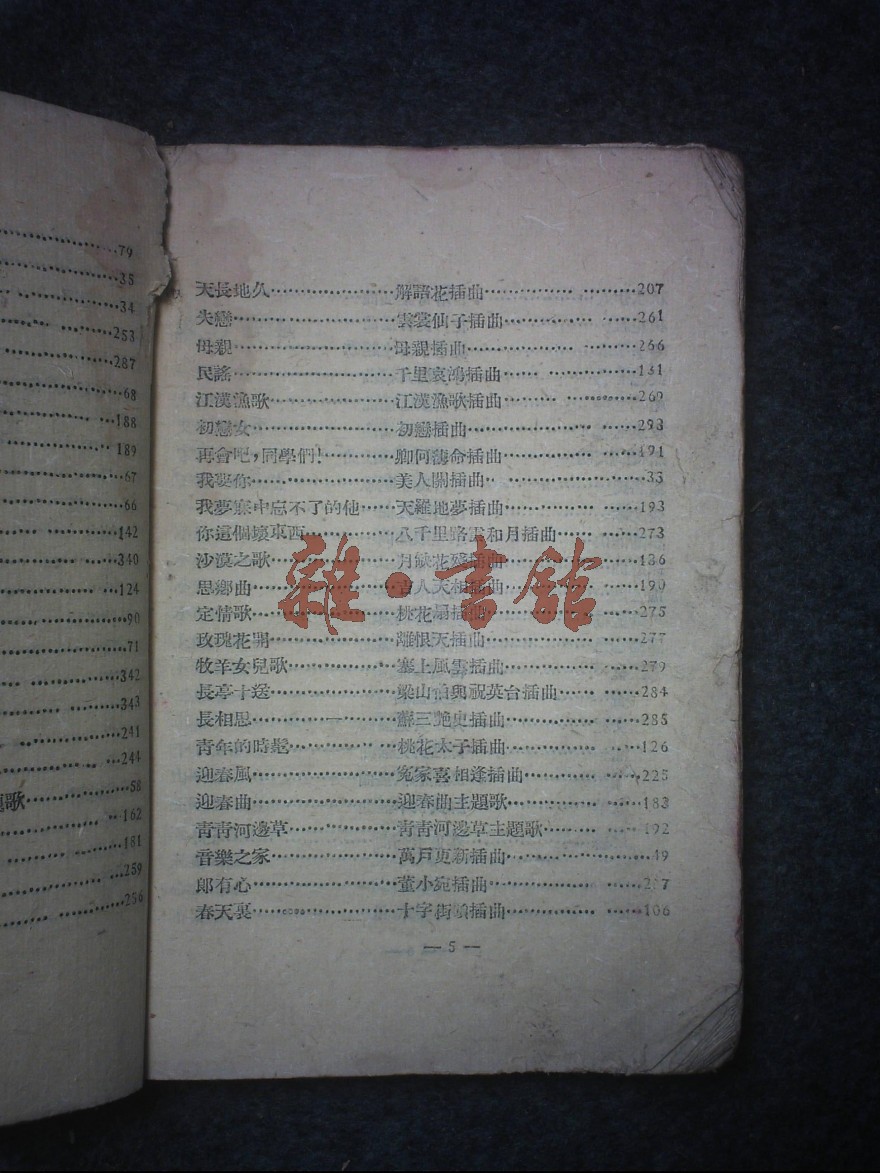 79
35
34
253
287
68
188
189
67
66
142
340
124
90
71
342
343
241
244
題歌 58
162
181
259
256
天長地久…………………解語花插曲…………… ………207
失戀……………… ………雲裳仙子插曲………… ………261
母親…………………………母親插曲……………… ………266
民謠…………………………千里哀鴻插曲…… …………131
江漢漁歌…………………江漢漁歌插曲……… …………269
初戀女……………………初戀插曲………………………293
再會吧,同學們!…………卿何薄命插曲……… ………191
我要你……………………美人關插曲… …………………33
我夢寐中忘不了的他……天羅地夢插曲……… ………193
你這個壞東西……………八千里路雲和月插曲…………273
沙漠之歌…………………月缺花殘插曲……………136
思鄉曲……………………吉人天相插曲……………190
定情歌……………………桃花扇插曲………………275
玫瑰花開…………………離恨天插曲……………… ………277
牧羊女兒歌………………塞上風雲插曲…………… ………279
長亭十送…………………梁山伯與祝英台插曲…… ………284
長相思……………………蘇三艷史插曲…………… ………285
青年的時髦………… ……桃花太子插曲…………… ………126
迎春風……………………冤家喜相逢插曲………… ………225
迎春曲……………………迎春曲主題歌…………… ………183
青青河邊草………………青青河邊草主題歌……… ………192
音樂之家…………………萬戶更新插曲…………… ………49
郎有心……………………董小宛插曲……………… ………
春天裏……………………十字街頭插曲…………… ………106
— 5 —
雜·書館